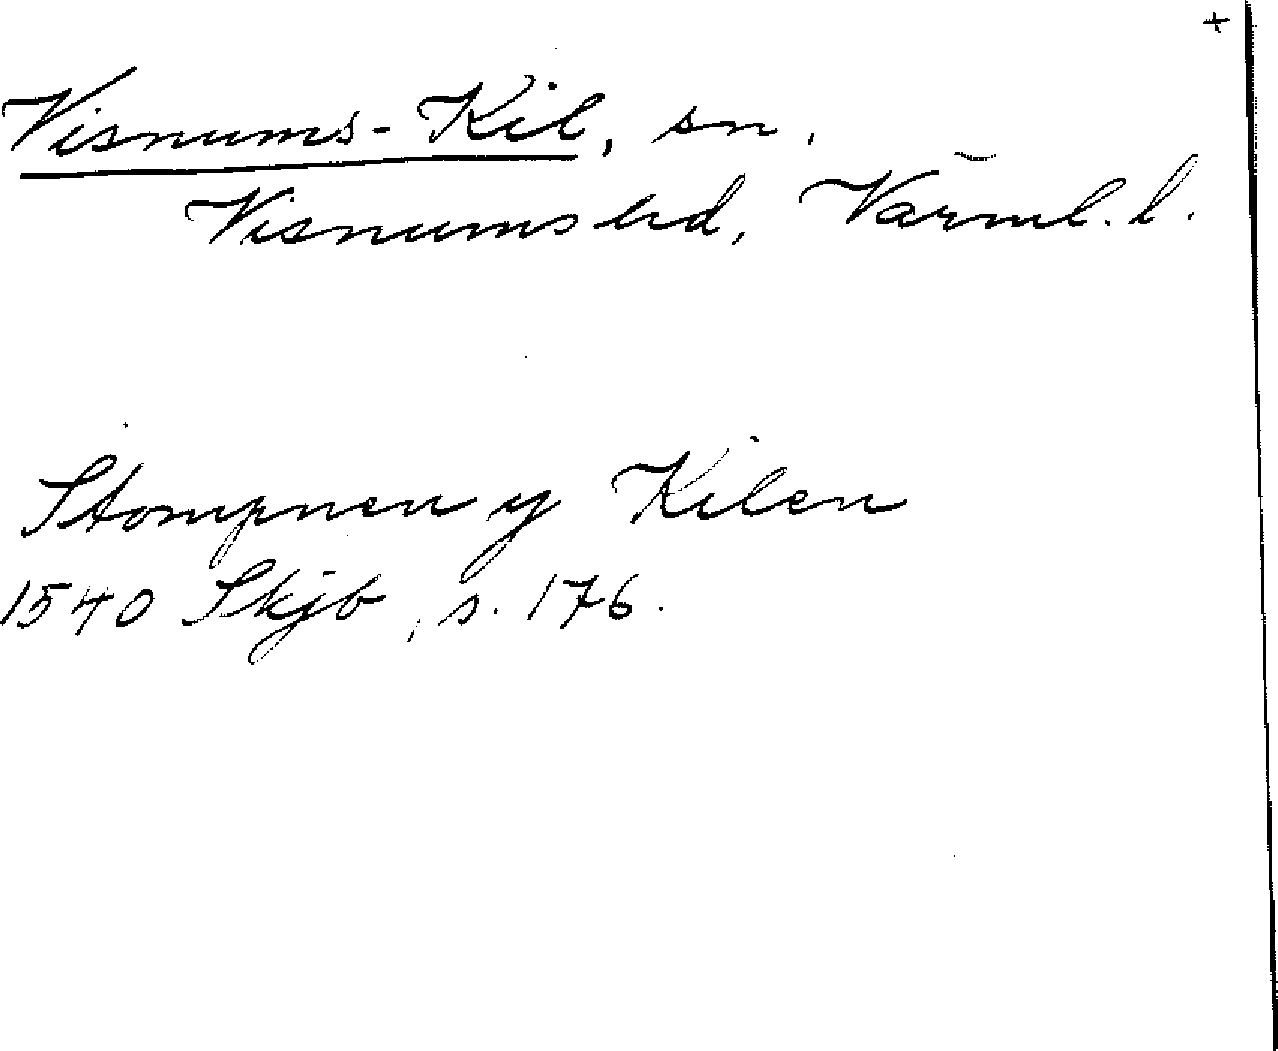 +
Visnums-Kil, sn,
Visnums hd, Värml. l.
Stompnen y Kilen
1540 Skjb, s. 176.